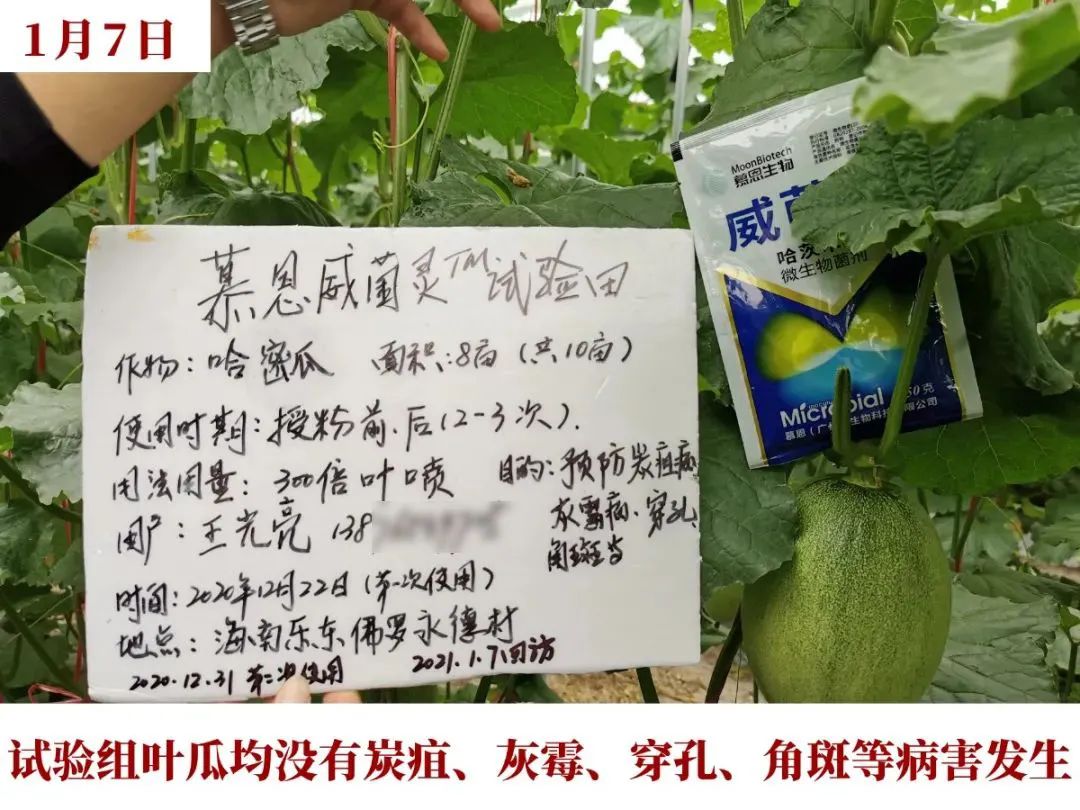 1月7日
MoonBiotech
慕恩生物
威
哈茨
微生物菌剂
Microbial
50克
慕恩（广
生物科技
限公司
慕恩威菌灵TM试验田
作物：哈密瓜 面积：8亩（共10亩）
使用时期：授粉前、后（2-3次）.
用法用量：300倍叶喷
目的：预防炭疽病
灰霉病、穿孔
角斑等
用户：王光亮 138
时间：2020年12月22日（第一次使用）
地点：海南乐东佛罗永德村
2020.12.31 第二次使用 2021.1.7回访
试验组叶瓜均没有炭疽、灰霉、穿孔、角斑等病害发生